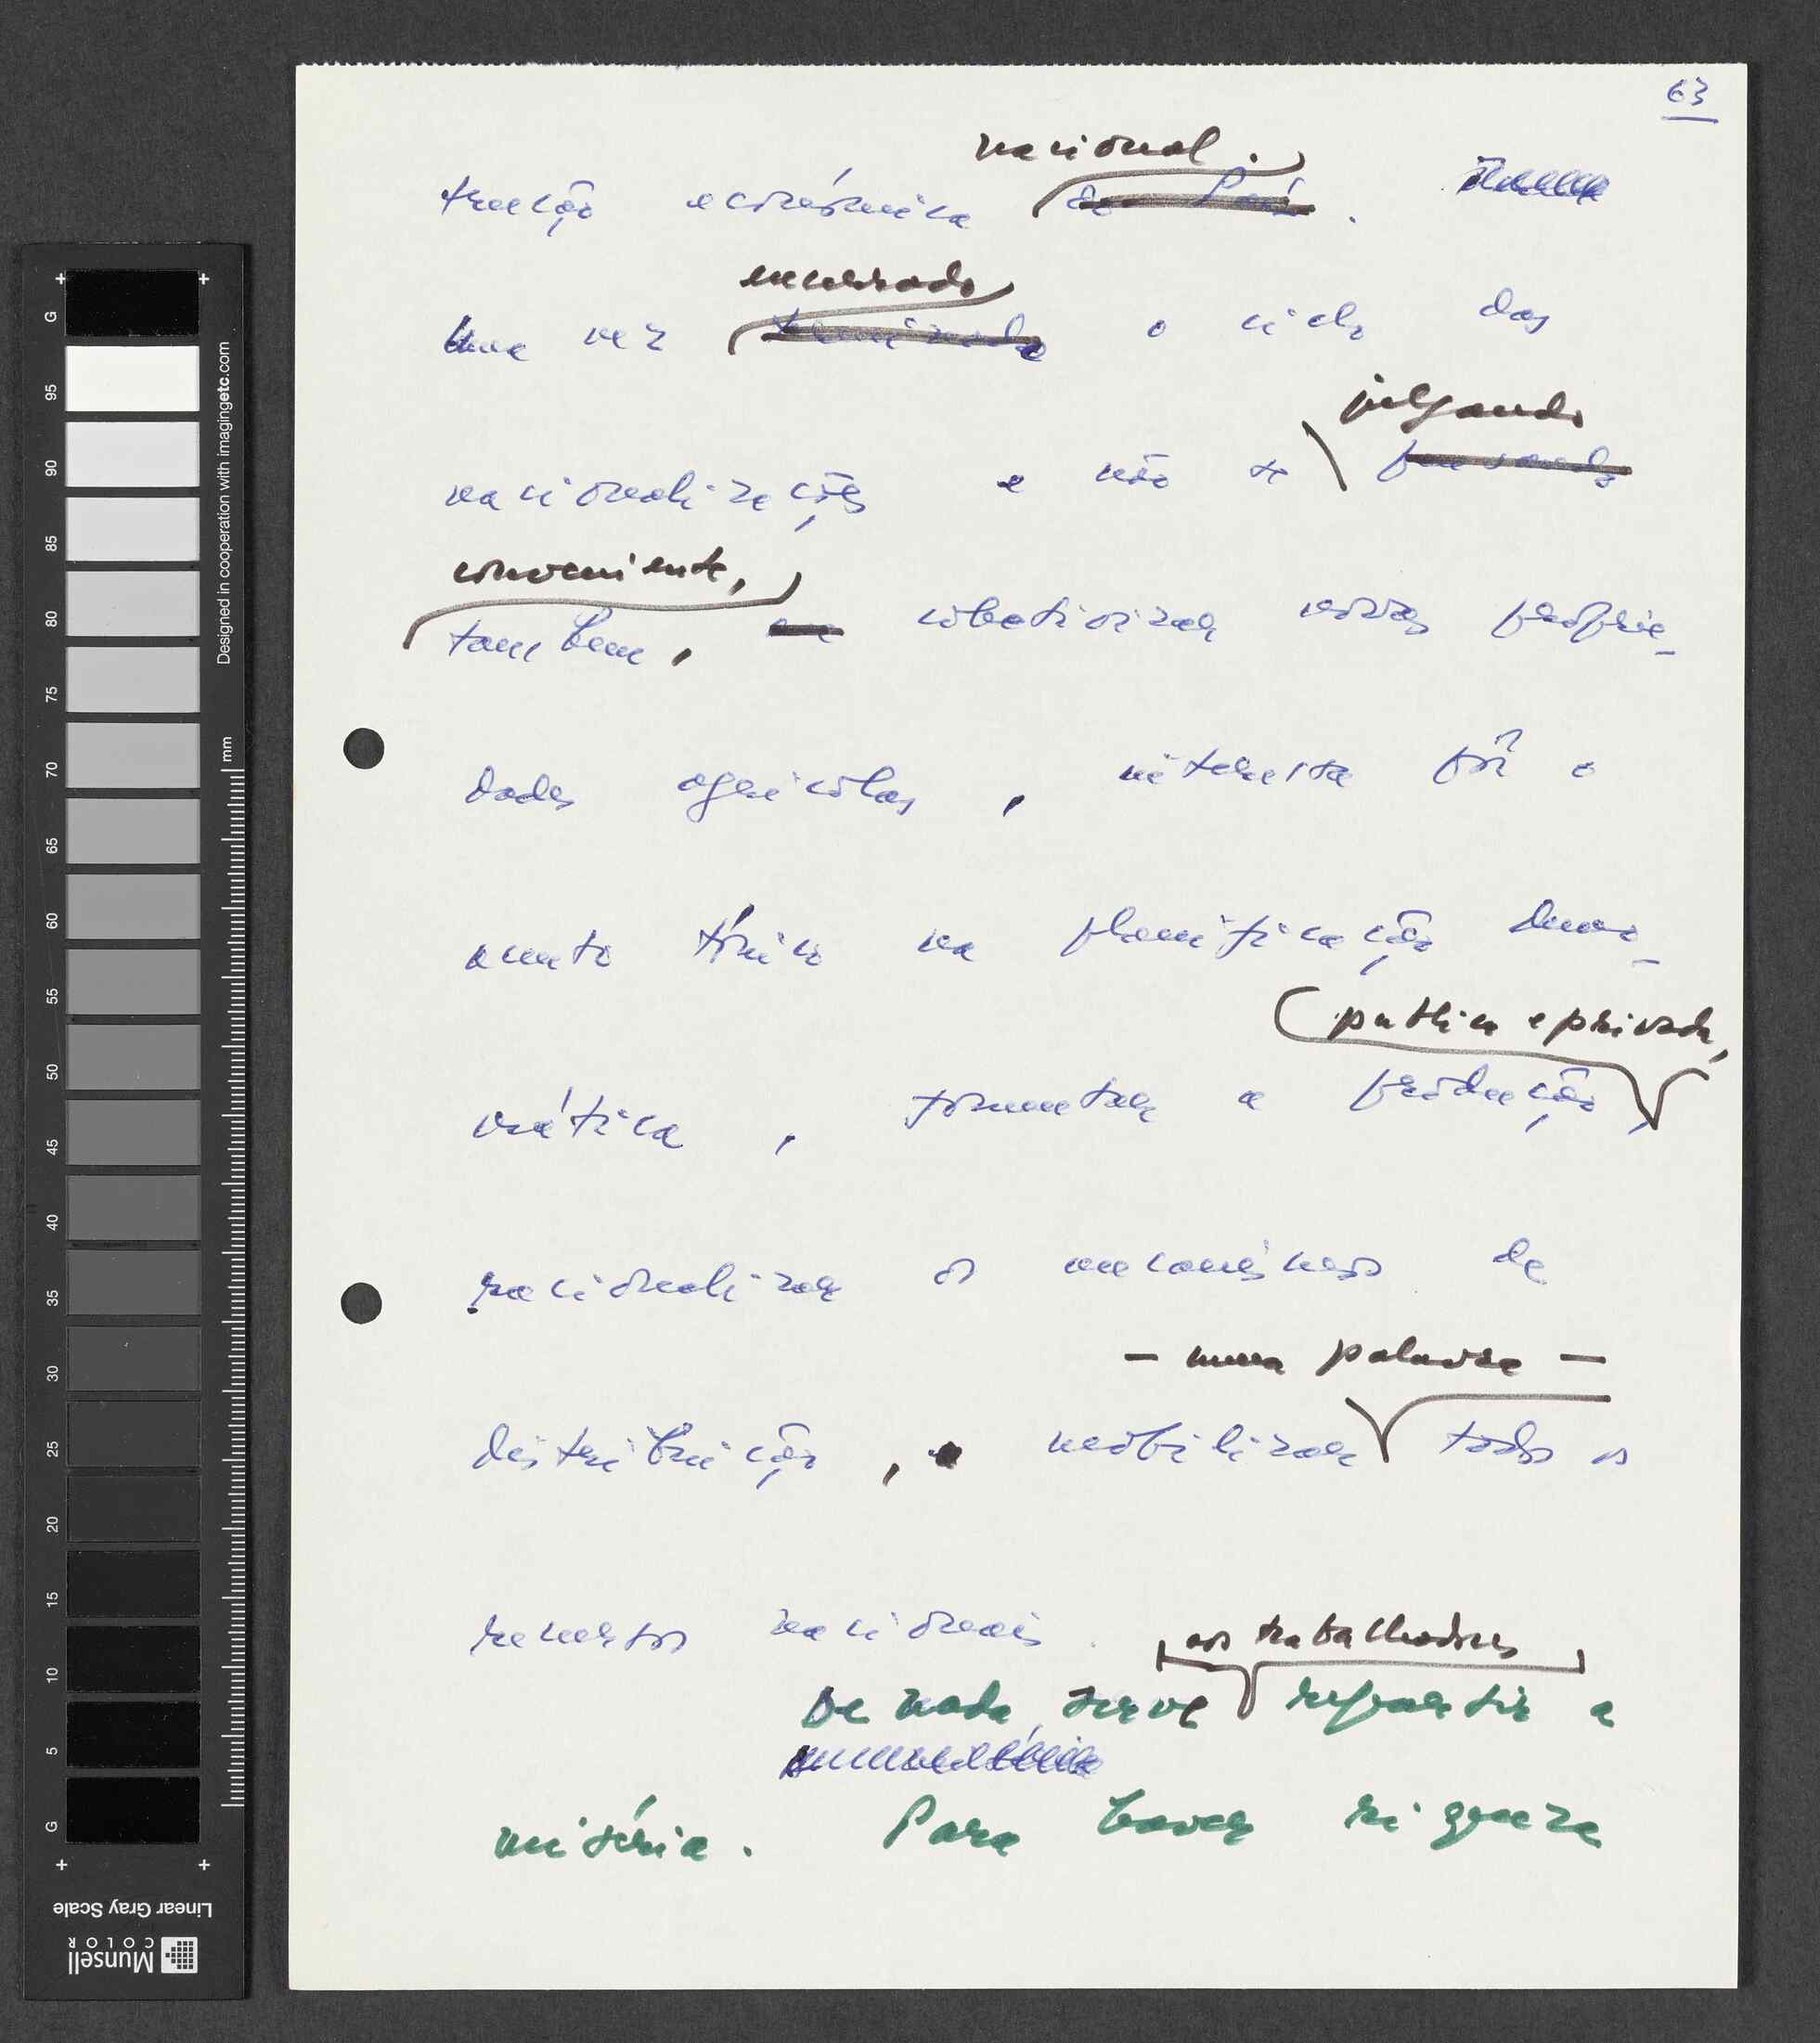 63
nacional.
trução económica do País.
encerrado
Uma vez terminado o ciclo das
julgando
nacionalizações e não se pensando
conveniente,
também, em colectivizar novas proprie-
dades agrícolas, interessa pôr o
acento tónico na planificação demo-
pública e privada,
crática, fomentar a produção,
racionalizar os mecanismos de
— numa palavra —
distribuição, e mobilizar todos os
recursos nacionais.
aos trabalhadores
De nada serve repartir a
miséria. Para haver riqueza
G
95
90
85
80
75
70
65
60
55
50
45
40
35
30
25
20
15
10
5
G
mm
Designed in cooperation with imagingetc.com
Linear Gray Scale
Munsell
COLOR